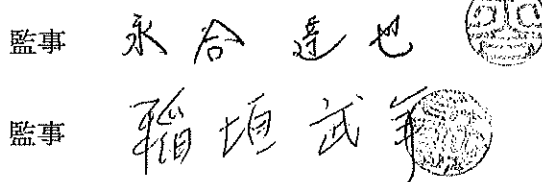 監事 永合達也
監事 稲垣武年